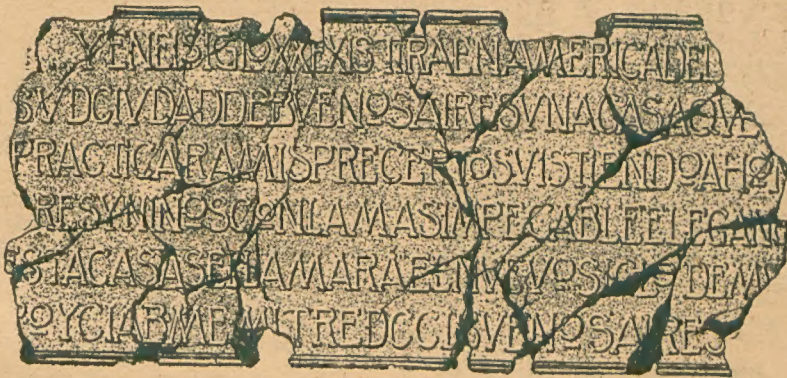 YENELSIGLOXXEXISTIRAENAMERICADEL
SVDCIVDADDEBVENOSAIRESVNACASAQVE
PRACTICARAMISPRECEPTOSVISTIENDOAHOM
RESYNINOSCONLAMASIMPECABLEELEGANC
ESTACASASELLAMARAELNVEVOSIGLODEM
POYCIABMEMITREDCCIBVENOSAIRES